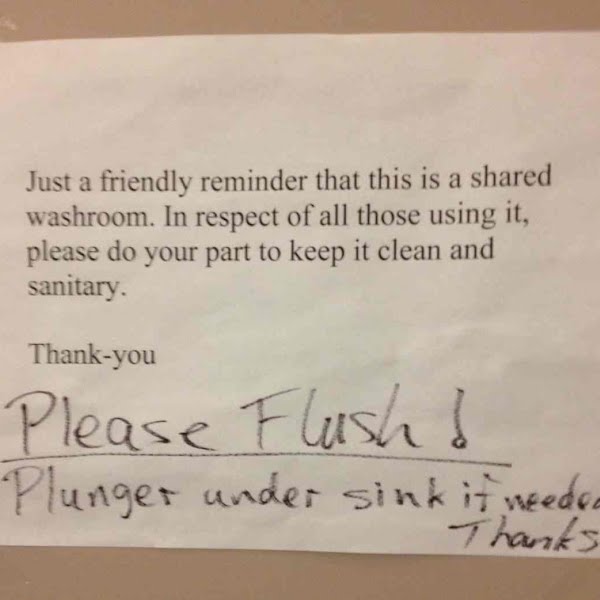 Just a friendly reminder that this is a shared
washroom. In respect of all those using it,
please do your part to keep it clean and
sanitary.
Thank-you
Please Flush!
Plunger under sink if needed
Thanks